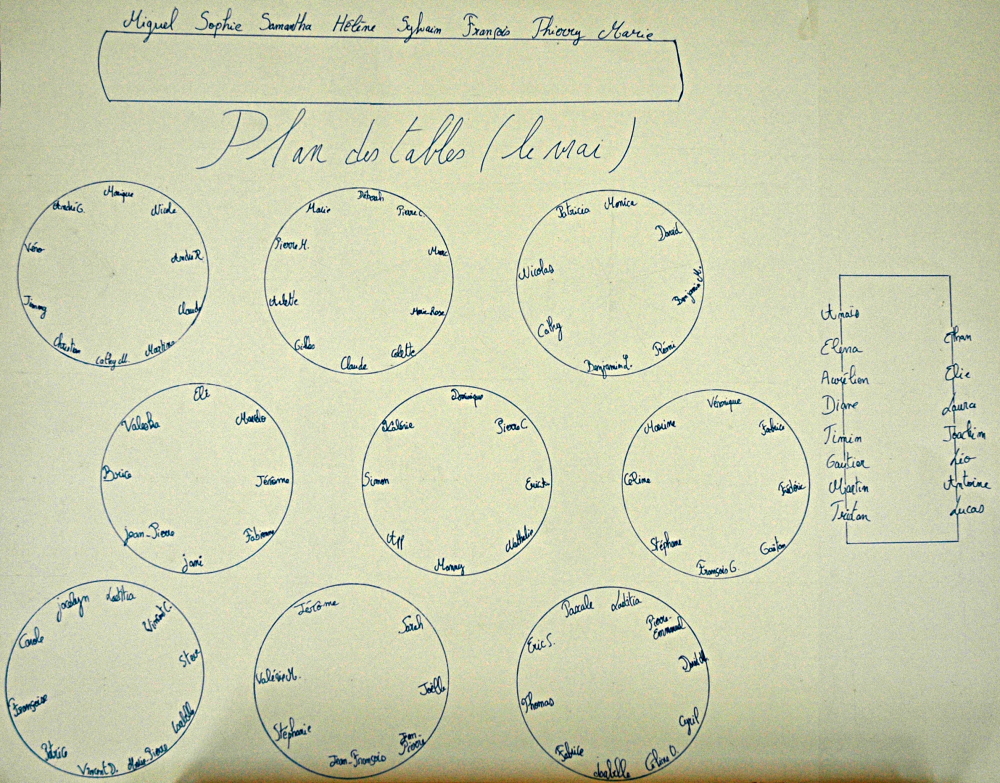 Miguel Sophie Samantha Hélène Sylvain François Thierry Marie
Plan des tables (le vrai)
Monique
Nicole
André R.
Claude
Martine
Cathy M.
Christian
Jimmy
Véro
André G.
Déborah
Pierre C.
Marc
Marie-Rose
Colette
Claude
Gilles
Arlette
Pierre M.
Marie
Patricia
Monica
David
Benjamin M.
Rémi
Benjamin L.
Cathy
Nicolas
Eli
Jérôme
Fabienne
Jami
Jean-Pierre
Brice
Valeska
Dominique
Pierre C.
Erick
Nathalie
Simon
Valérie
Véronique
Fabrice
Frédéric
Gaëtan
François G.
Stéphane
Céline
Maxime
Jocelyn
Laëtitia
Vincent C.
Steve
Isabelle
Marie-Pierre
Vincent D.
Patrice
Françoise
Carole
Jérôme
Sarah
Joëlle
Jean-Pierre
Jean-François
Stéphanie
Valérie M.
Pascale
Laëtitia
Pierre-
Emmanuel
Cyril
Céline D.
Isabelle
Fabrice
Thomas
Eric S.
Anaïs
Elena
Aurélien
Diane
Timin
Gautier
Martin
Tristan
Ethan
Elie
Laura
Joachim
Léo
Antoine
Lucas